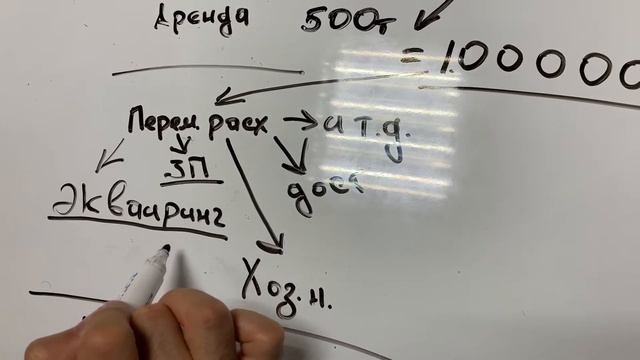 Аренда 500т
= 1.000000
Перем. расх → и т.д.
ЗП
дост
Экваиринг
Хоз.н.